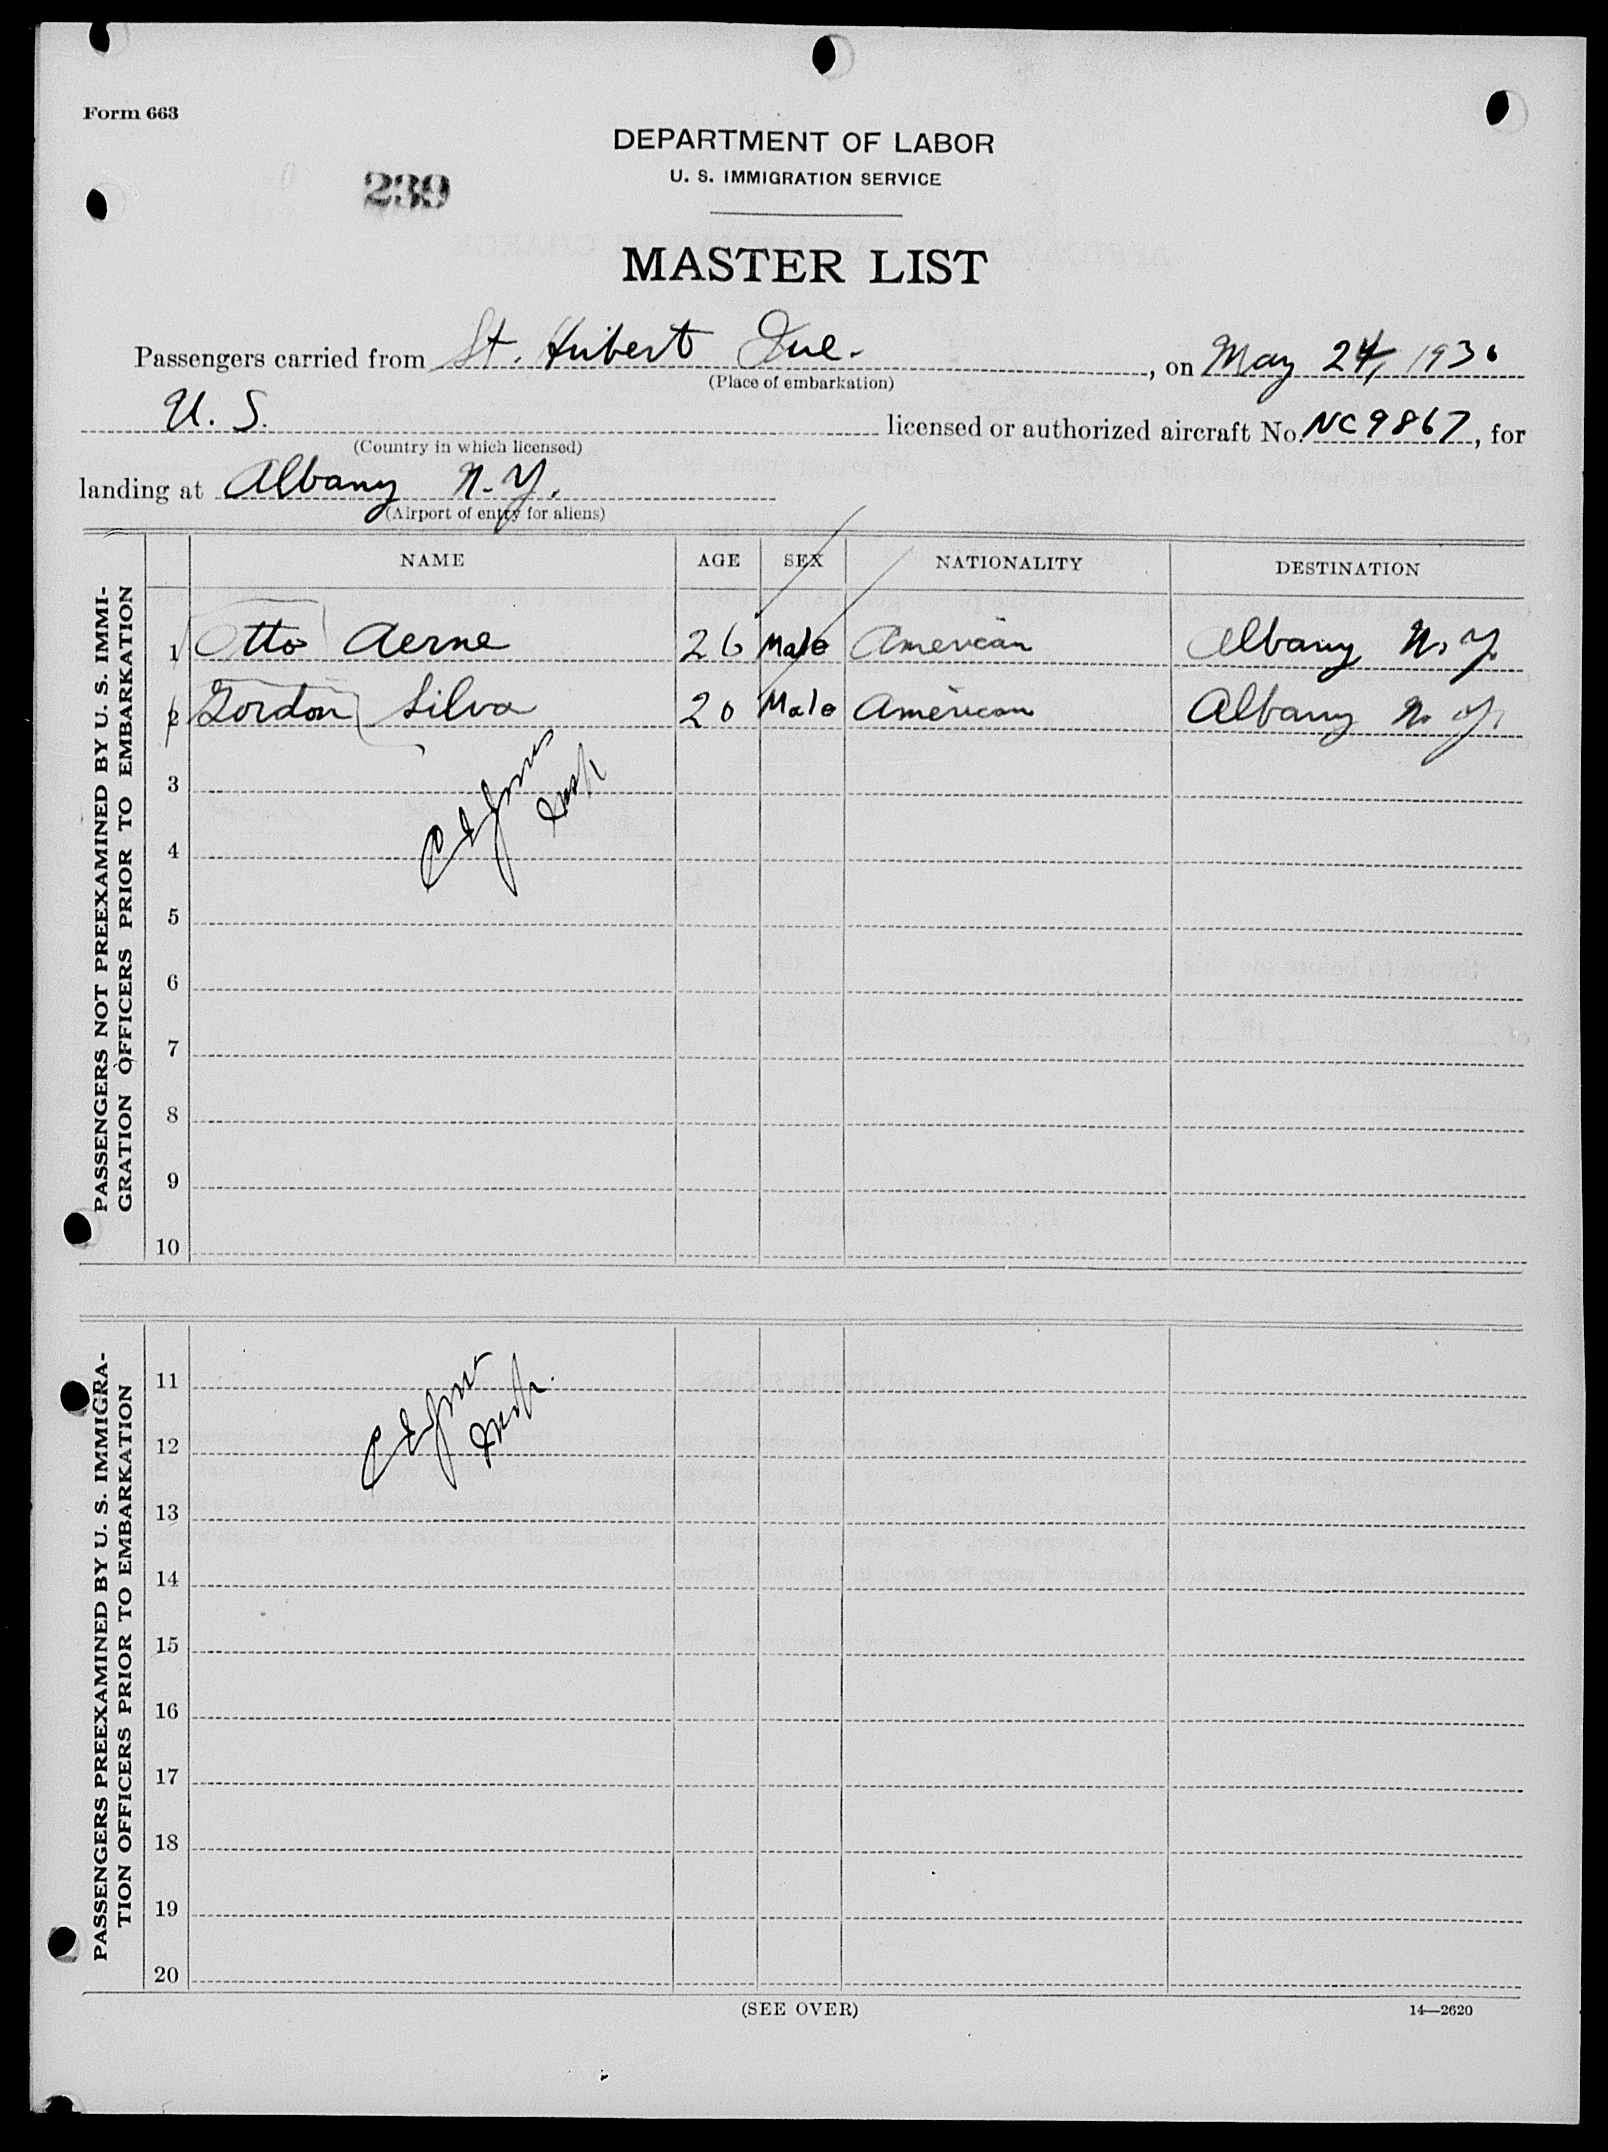 Form 663
DEPARTMENT OF LABOR
U. S. IMMIGRATION SERVICE
239
MASTER LIST
Passengers carried from St. Hubert Que. , on May 24, 1930
(Place of embarkation)
U. S. licensed or authorized aircraft No. NC9867, for
(Country in which licensed)
landing at Albany N.Y.
(Airport of entry for aliens)
NAME AGE SEX NATIONALITY DESTINATION
PASSENGERS NOT PREEXAMINED BY U. S. IMMI-
GRATION OFFICERS PRIOR TO EMBARKATION
1 Otto Aerne 26 Male American Albany N. Y.
2 Gordon Silva 20 Male American Albany N. Y.
3
4
C E Jones
Insp
5
6
7
8
9
10
PASSENGERS PREEXAMINED BY U. S. IMMIGRA-
TION OFFICERS PRIOR TO EMBARKATION
11
12
C E Jones
Insp.
13
14
15
16
17
18
19
20
(SEE OVER) 14—2620